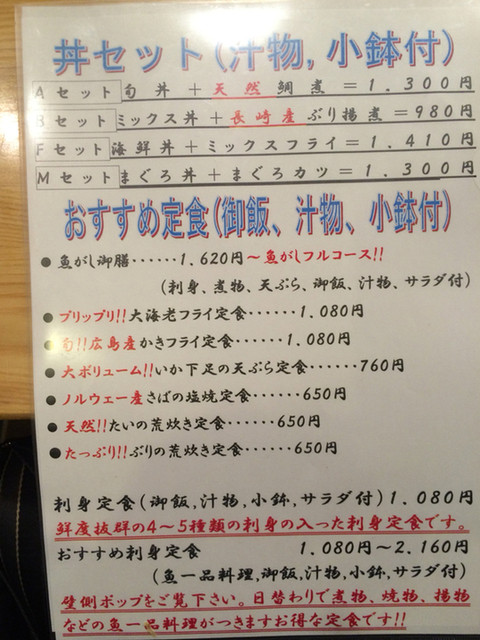 丼セット(汁物,小鉢付)
Aセット旬丼+天然鯛煮=1.300円
Bセットミックス丼+長崎産ぶり揚煮=980円
Fセット海鮮丼+ミックスフライ=1.410円
Mセットまぐろ丼+まぐろカツ=1.300円
おすすめ定食(御飯、汁物、小鉢付)
●魚がし御膳‥‥‥1.620円～魚がしフルコース!!
(刺身、煮物、天ぷら、御飯、汁物、サラダ付)
●プリップリ!!大海老フライ定食‥‥‥1.080円
●旬!!広島産かきフライ定食‥‥‥1.080円
●大ボリューム!!いか下足の天ぷら定食‥‥‥760円
●ノルウェー産さばの塩焼定食‥‥‥650円
●天然!!たいの荒炊き定食‥‥‥650円
●たっぷり!!ぶりの荒炊き定食‥‥‥650円
刺身定食(御飯,汁物,小鉢,サラダ付)1.080円
鮮度抜群の4～5種類の刺身の入った刺身定食です。
おすすめ刺身定食 1.080円～2.160円
(魚一品料理,御飯,汁物,小鉢,サラダ付)
壁側ポップをご覧下さい。日替わりで煮物、焼物、揚物
などの魚一品料理がつきますお得な定食です!!